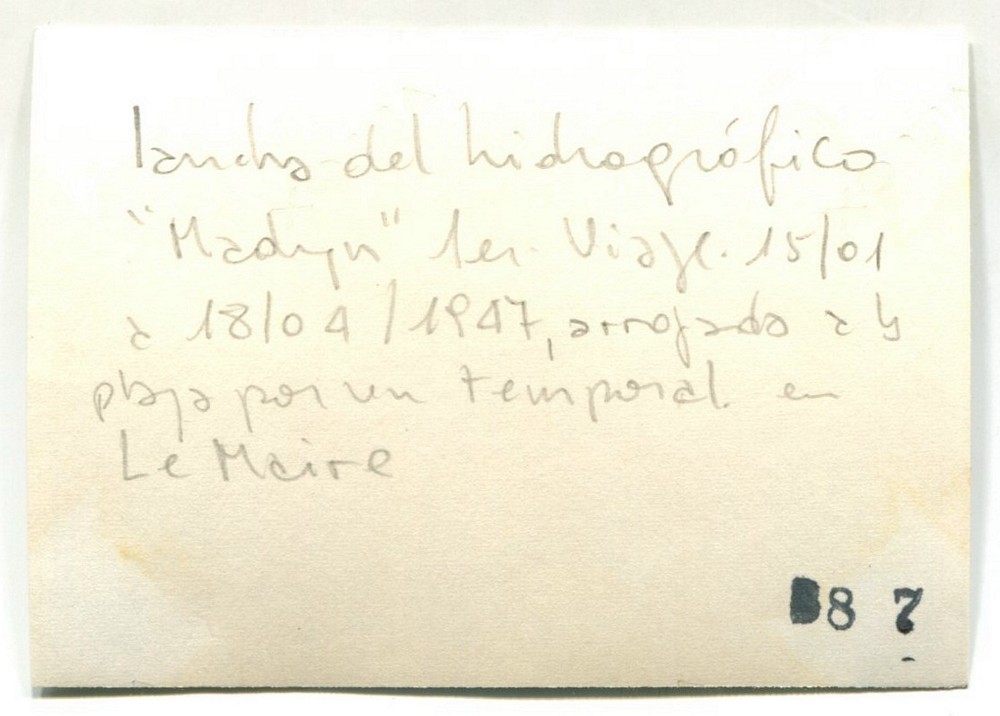 lancha del hidrográfico
"Madryn" 1er. Viaje. 15/01
a 18/04/1947, arrojado a la
playa por un temporal. en
Le Maire
8 7